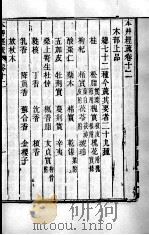 本艸經疏卷十二
木部上品
總七十二種今疏其要者二十九種
桂 松脂 槐實
枸杞 柏實 茯苓 琥珀
酸棗仁 黃蘗 楮實 乾漆
五加皮 牡荊實 蔓荊實 辛夷
桑上寄生 杜仲 楓香脂 女貞實
蕤核 丁香 沈香 檀香
乳香 降眞香 蘇合香 金櫻子
放杖木